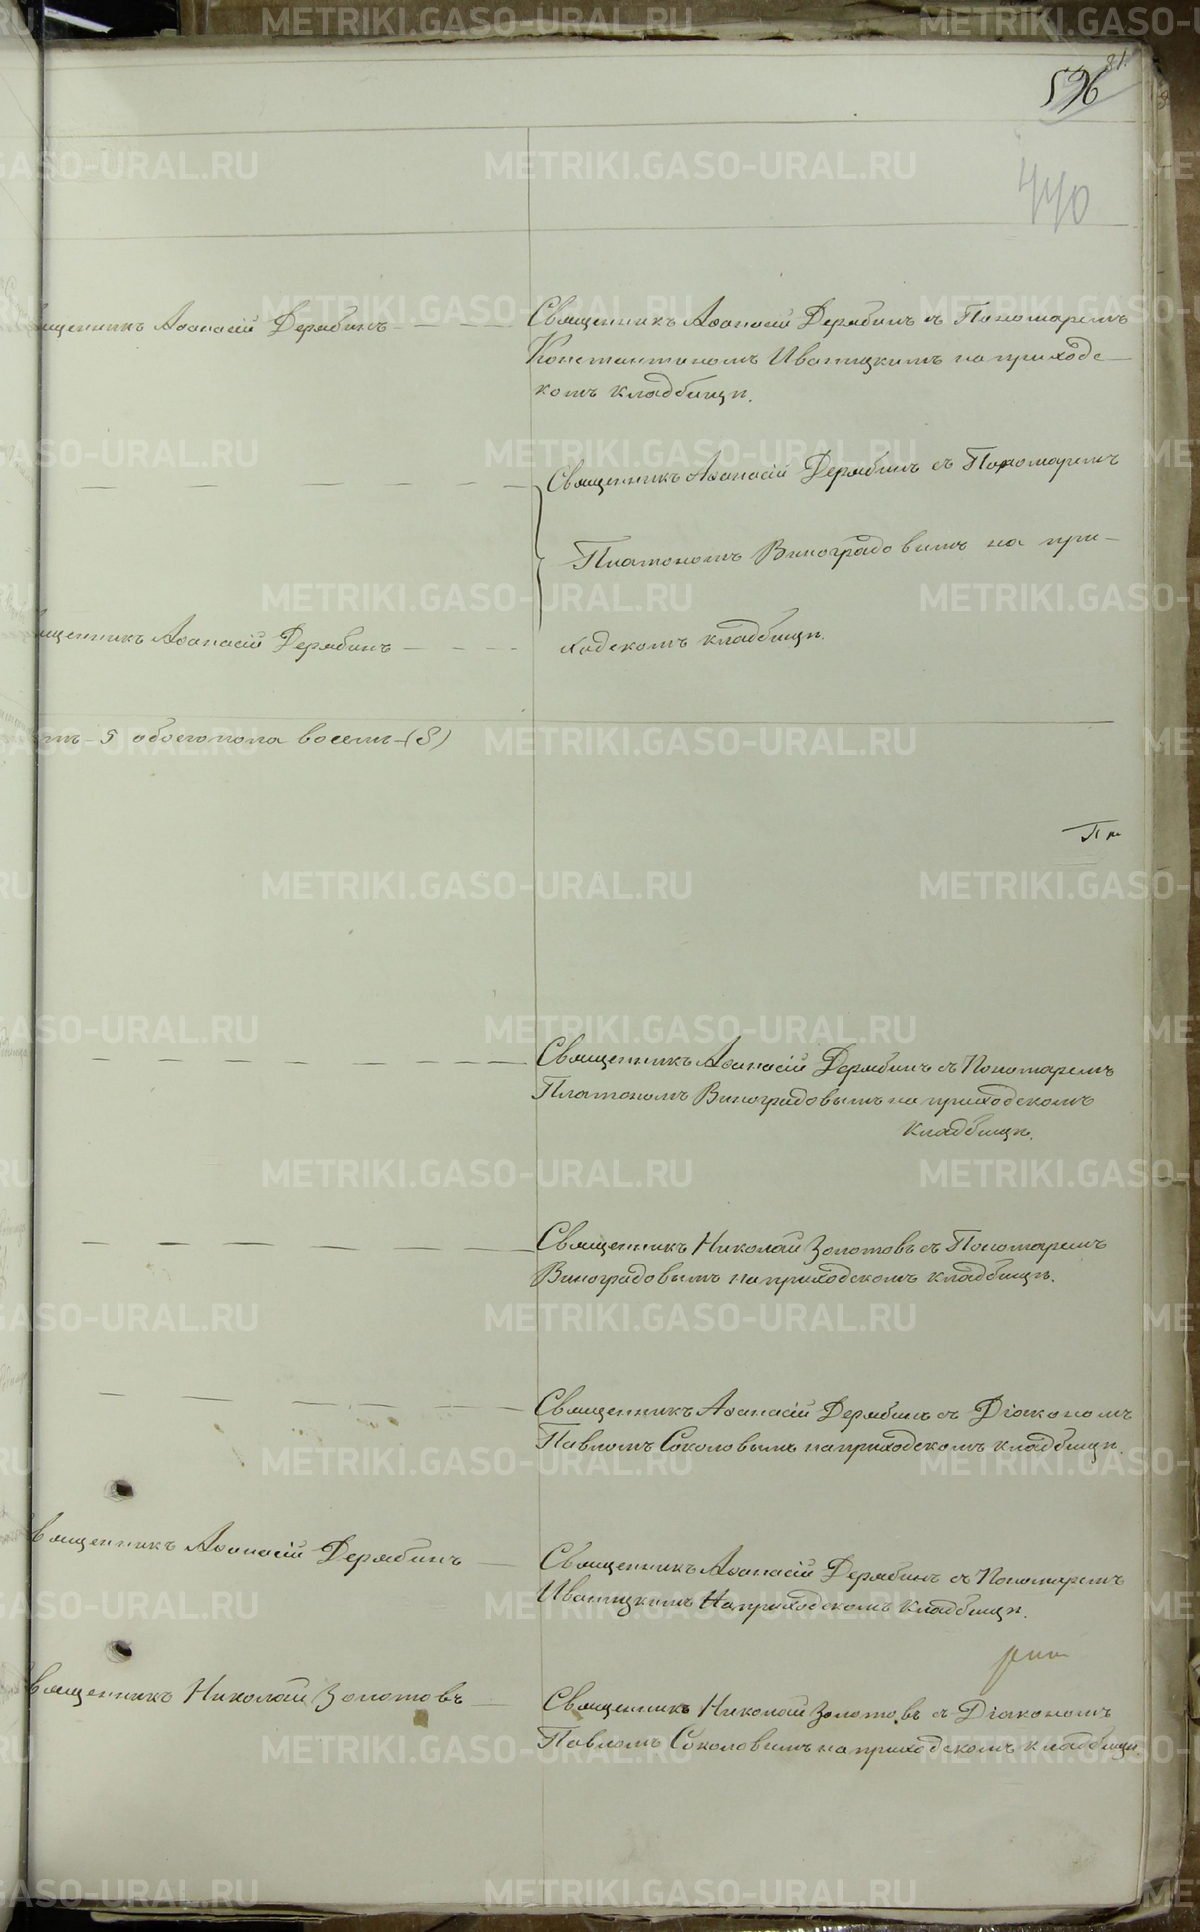 81
596
440
Священникъ Аѳанасій Дерябинъ
Священникъ Аѳанасій Дерябинъ съ Пономаремъ
Константиномъ Иваницкимъ на приходс-
комъ кладбищѣ.
Священникъ Аѳанасій Дерябинъ съ Пономаремъ
Платономъ Виноградовымъ на при-
ходскомъ кладбищѣ.
ященникъ Аѳанасій Дерябинъ
5 обоего пола восемь (8)
Священникъ Аѳанасій Дерябинъ съ Пономаремъ
Платономъ Виноградовымъ на приходскомъ
кладбищѣ.
Священникъ Николай Золотовъ съ Пономаремъ
Виноградовымъ на приходскомъ кладбищѣ.
Священникъ Аѳанасій Дерябинъ съ Діакономъ
Павломъ Соколовымъ на приходскомъ кладбищѣ.
вященникъ Аѳанасій Дерябинъ
Священникъ Аѳанасій Дерябинъ съ Пономаремъ
Иваницкимъ на приходскомъ кладбищѣ.
вященникъ Николай Золотовъ
Священникъ Николай Золотовъ съ Діакономъ
Павломъ Соколовымъ на приходскомъ кладбищѣ
METRIKI.GASO-URAL.RU